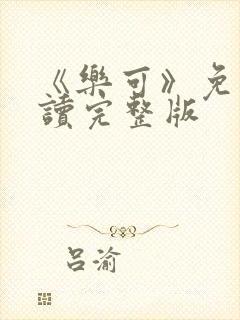 《樂可》免
讀完整版
吕渝